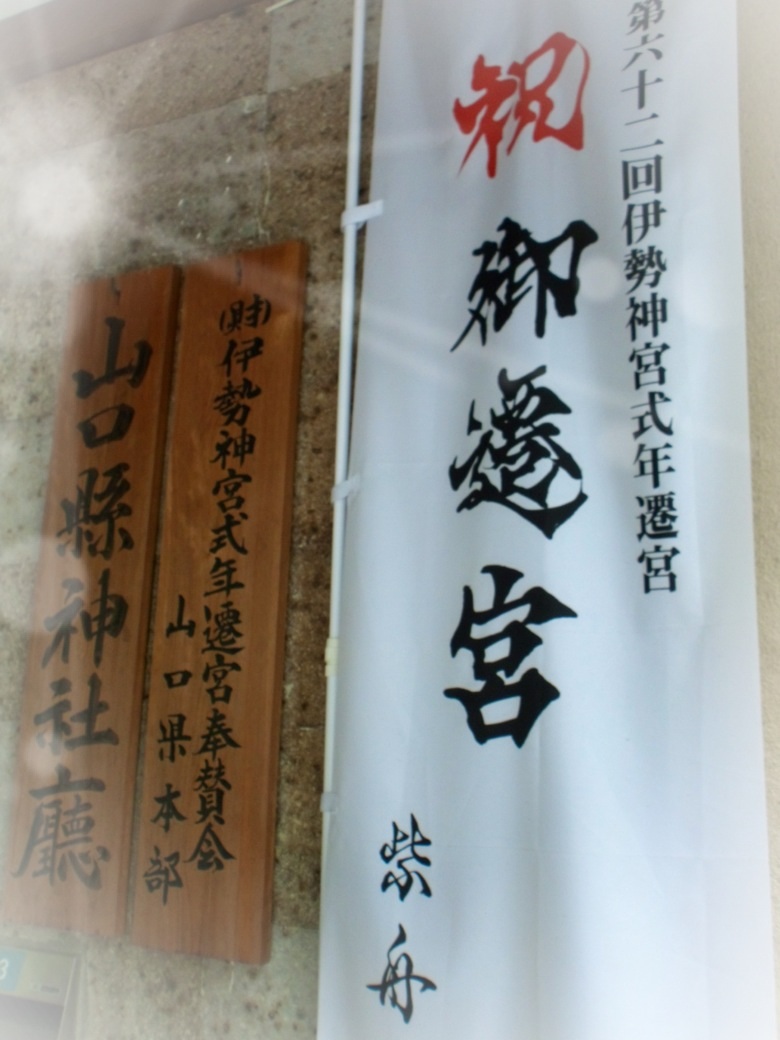 第六十二回伊勢神宮式年遷宮
祝 御遷宮
紫舟
(財)伊勢神宮式年遷宮奉賛会
山口県本部
山口縣神社廳
3